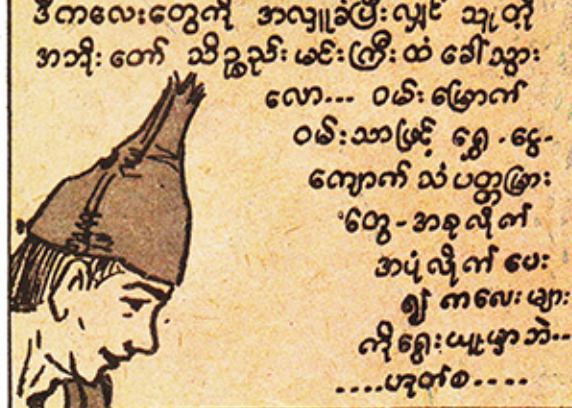 ဒီကလေးတွေကို အလှူခံပြီးလျှင် သူတို့
အဘိုးတော် သိဉ္စည်းမင်းကြီးထံ ခေါ်သွား
လော... ဝမ်းမြောက်
ဝမ်းသာဖြင့် ရွှေ-ငွေ-
ကျောက်သံပတ္တမြား
တွေ-အစုလိုက်
အပုံလိုက် ပေး
၍ ကလေးများ
ကို ရွေးယူမှာဘဲ..
....ဟုတ်စ....